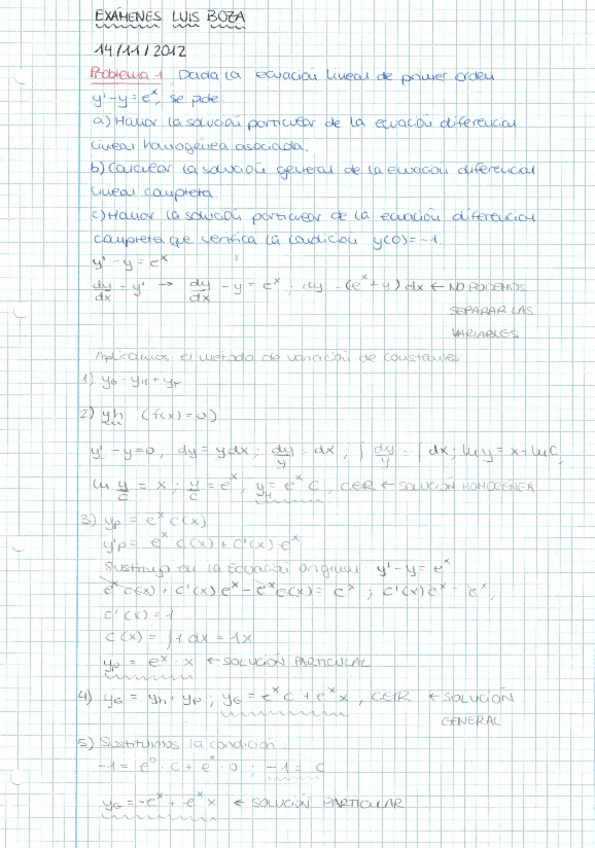 EXÁMENES LUIS BOZA
14/11/2012
Problema 1 Dada la ecuación lineal de primer orden
y' - y = eˣ, se pide
a) Hallar la solución particular de la ecuación diferencial
lineal homogénea asociada.
b) Calcular la solución general de la ecuación diferencial
lineal completa
c) Hallar la solución particular de la ecuación diferencial
completa que verifica la condición y(0) = -1.
y' - y = eˣ
dy/dx = y' → dy/dx - y = eˣ ; dy = (eˣ + y) dx ← NO PODEMOS
SEPARAR LAS
VARIABLES
Aplicamos el método de variación de constantes
1) y_G = y_H + y_P
2) yh (f(x) = 0)
y' - y = 0, dy = y dx ; dy/y = dx, ∫ dy/y = ∫ dx ; ln y = x + ln C,
ln y/C = x ; y/C = eˣ, y_H = eˣ C, C∈R ← SOLUCIÓN HOMOGÉNEA
3) yp = eˣ c(x)
y'p = eˣ c(x) + c'(x) eˣ
Sustituyo en la ecuación original y' - y = eˣ
eˣ c(x) + c'(x) eˣ - eˣ c(x) = eˣ ; c'(x) eˣ = eˣ,
c'(x) = 1
c(x) = ∫ 1 dx = 1x
yp = eˣ · x ← SOLUCIÓN PARTICULAR
4) y_G = yh + yp ; y_G = eˣ C + eˣ x, C∈R ← SOLUCIÓN
GENERAL
5) Sustituimos la condición
-1 = e⁰ · C + e⁰ · 0 ; -1 = C
y_G = -eˣ + eˣ x ← SOLUCIÓN PARTICULAR